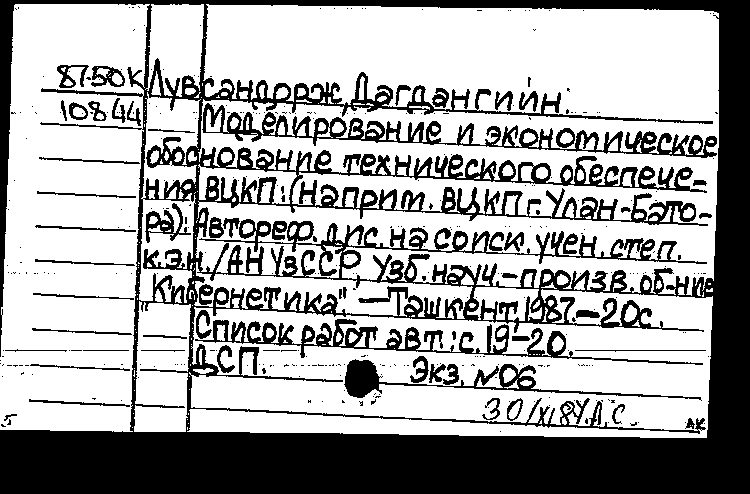 87-50К Лувсандорж, Дагдангийн.
10844 Моделирование и экономическое
обоснование технического обеспече-
ния ВЦКП: (Наприм. ВЦКП г. Улан-Бато-
ра): Автореф. дис. на соиск. учен. степ.
к.э.н. /АН УзССР, Узб. науч.-произв. об-ние
"Кибернетика". — Ташкент, 1987. — 20с.
Список работ авт.: с. 19-20.
ДСП. Экз. №06
30/XI 84. А.С. АК
5